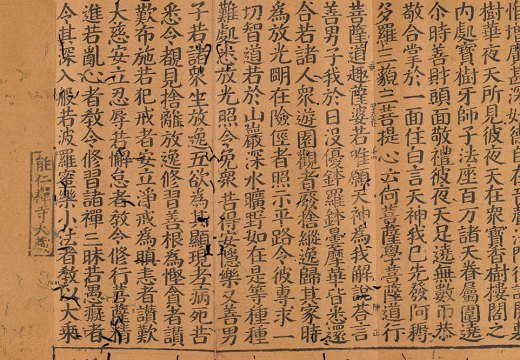 樹華夜天所見彼夜天在眾寶香樹樓閣之
內處寶樹牙師子法座百万諸天眷屬圍遶
尒時善財頭面敬禮彼夜天足遶無數帀恭
敬合掌於一面住白言天神我已先發阿耨
多羅三藐三菩提心云何菩薩學菩薩道行
菩薩道趣薩婆若唯願天神為我解說荅言
善男子我於日沒優鉢羅鉢曇摩華皆悉還
合若諸人眾遊園觀者發捨縱逸歸其家時
為放光明在險徑者照示平路令彼專求一
切智道若於山巖深水曠野如在是等種種
難處悉放光照令眾皆得安隱樂又善男
子若諸眾生放逸五欲為其顯現老病死苦
悉令覩見捨離放逸修習善根為慳貪者讚
歎布施若犯戒者安立淨戒為瞋恚者讚歎
大慈安立忍辱若懈怠者教令修行菩薩精
進若亂心者教令修習諸禪三昧若愚癡者
令其深入般若波羅蜜樂小法者教以大乘
能仁禪寺大藏